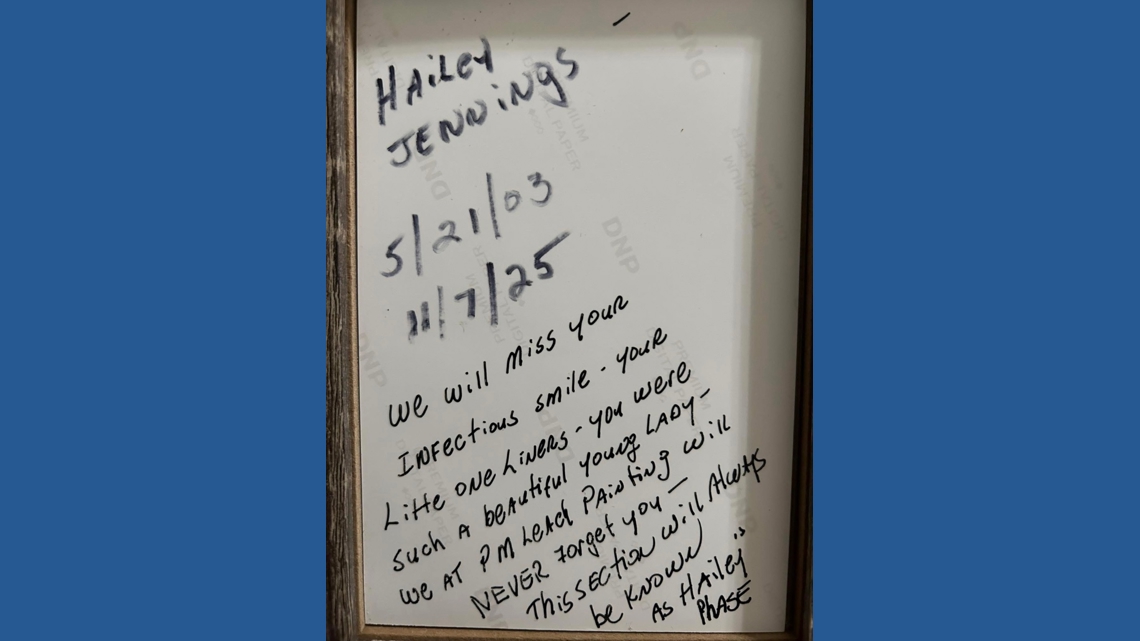 HAiLEY
JENNiNgS
5/21/03
11/7/25
we will miss your
INFectious smile - your
Little one Liners - you were
such A beautiful young LADY -
we AT PM LeAd PAinting will
NEVER Forget you -
This sECTiON will AlwAys
be KNOWN
AS HAiley's
PHASE
DNP
DNP
DNP
DNP